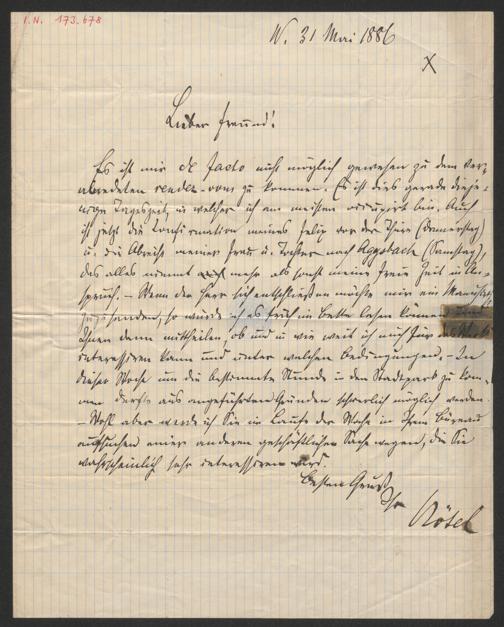 I. N. 173.678
W. 31 Mai 1886
X
Lieber Freund!
Es ist mir de facto nicht möglich gewesen zu dem ver-
abredeten rendez-vous zu kommen. Es ist dies gerade dieje-
nige Tageszeit, in welcher ich am meisten occupirt bin. Auch
ist jetzt die Confirmation meines Felix vor der Thür (Donnerstag)
u. die Abreise meiner Frau u. Tochter nach Aggsbach (Samstag),
das alles nimmt mehr als sonst meine freie Zeit in An-
spruch. – Wenn der Herr sich entschließen möchte mir ein Manuscript
zuzusenden, so würde ich es früh im Bette lesen können und
Ihnen dann mittheilen, ob und in wie weit ich mich für
interessiren kann und unter welchen Bedingungen. – In
dieser Woche um die bestimmte Stunde in den Stadtpark zu kom-
men dürfte aus angeführten Gründen schwerlich möglich werden.
– Wohl aber werde ich Sie im Laufe der Woche in Ihrem Büreau
aufsuchen einer anderen geschäftlichen Sache wegen, die Sie
wahrscheinlich sehr interessiren wird.
Besten Gruß
Ihr